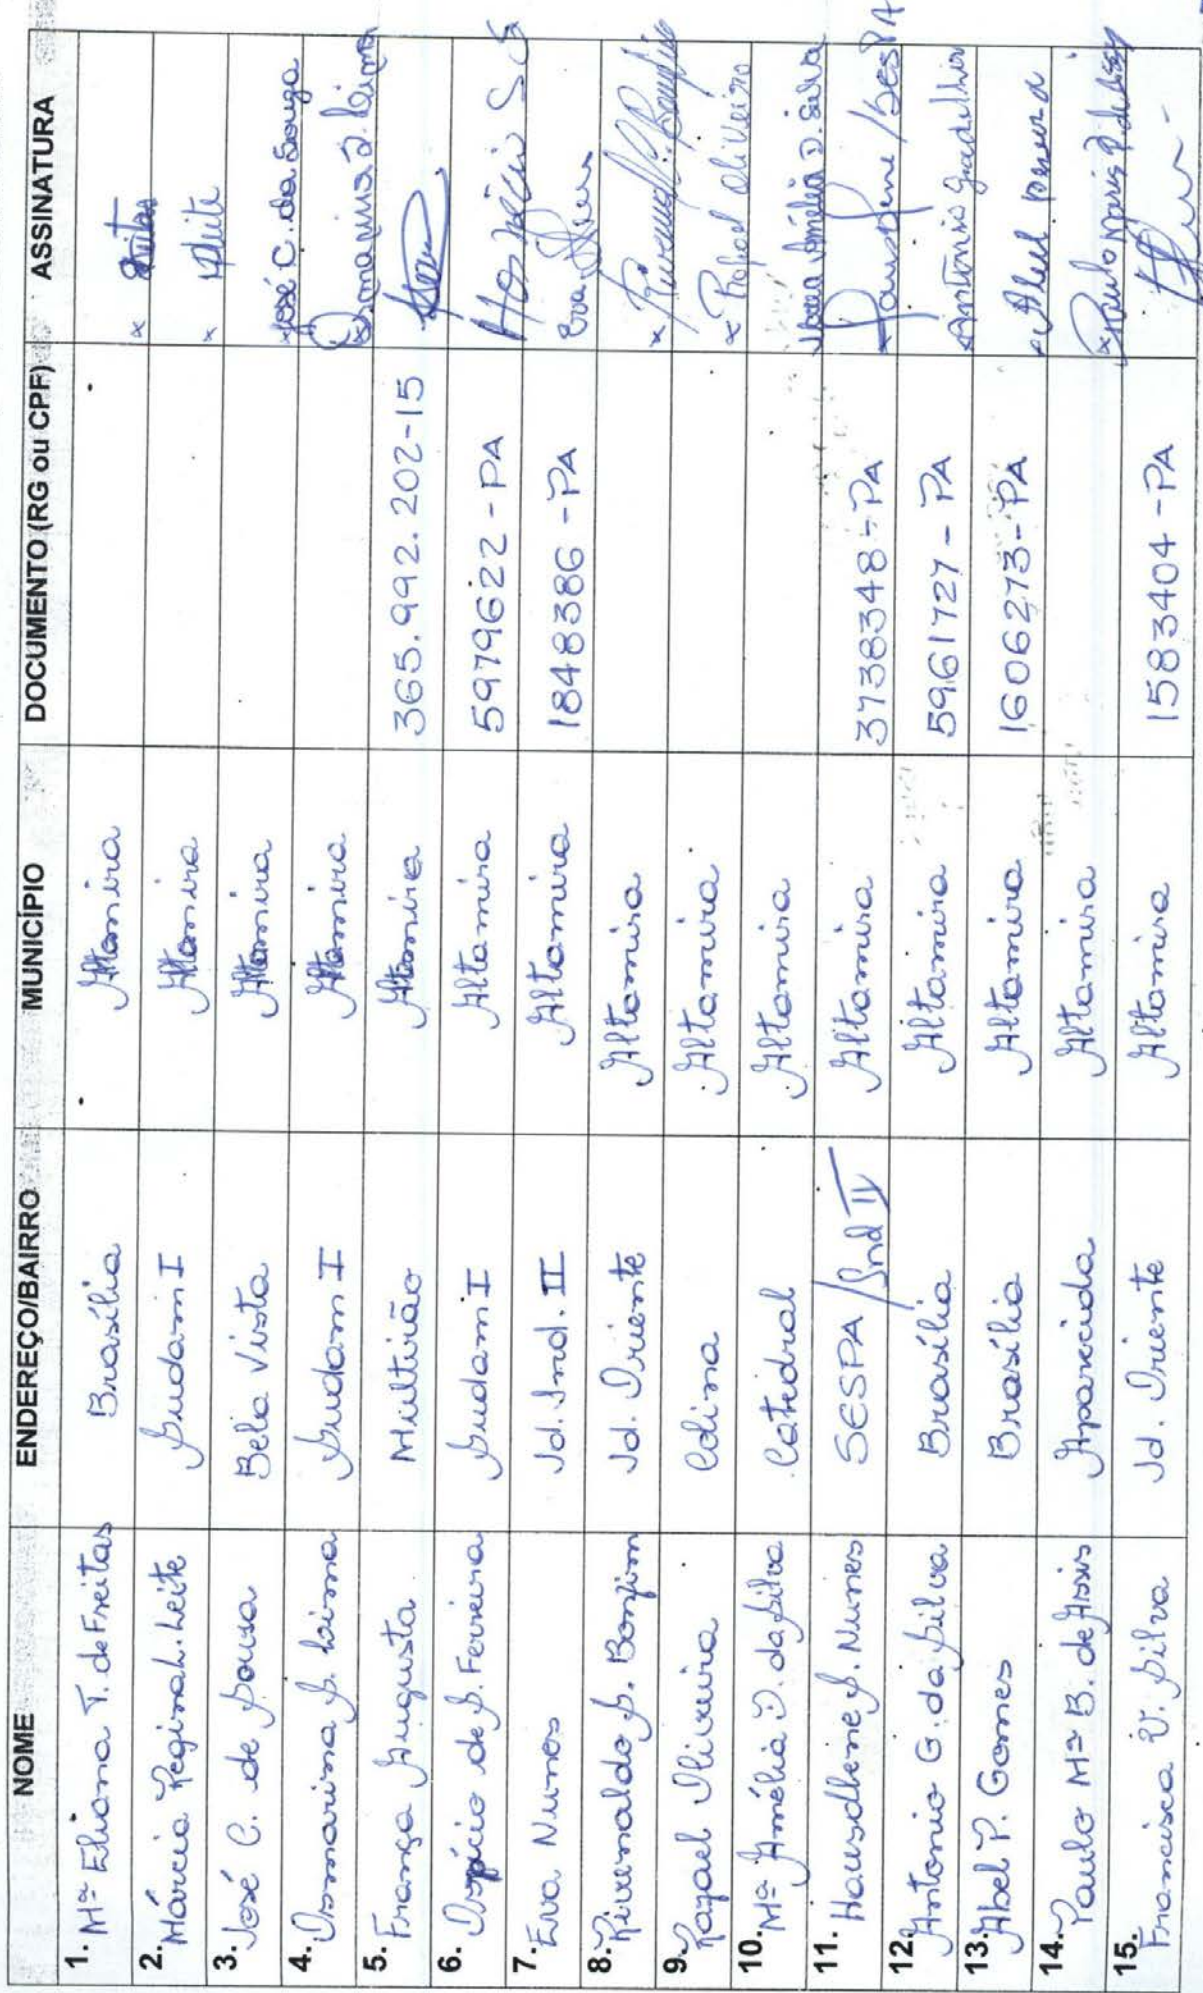 NOME ENDEREÇO/BAIRRO MUNICÍPIO DOCUMENTO (RG ou CPF) ASSINATURA
1. Mª Eliana T. de Freitas Brasília Altamira x
2. Márcia Regina L. Leite Sudam I Altamira x Leite
3. José C. de Sousa Bela Vista Altamira José C. da Souza
4. Osmarina S. Lima Sudam I Altamira Osmarina S. Lima
5. França Augusta Multirão Altamira 365.992.202-15
6. de S. Ferreira Sudam I Altamira 5979622-PA
7. Eva Nunes Jd. Ind. II Altamira 1848386-PA Eva
8. Rivenaldo S. Bonfim Jd. Oriente Altamira x
9. Rafael Oliveira Colina Altamira x Rafael Oliveira
10. Mª Amélia D. da Silva Catedral Altamira Maria Amélia D. Silva
11. Hausdhene S. Nunes SESPA / Ind IV Altamira 3738348-PA /SESPA
12. Antonio G. da Silva Brasília Altamira 5961727-PA Antonio
13. Abel P. Gomes Brasília Altamira 1606273-PA Abel
14. Paulo Mª B. de Assis Aparecida Altamira x Paulo
15. Francisca V. Silva Jd. Oriente Altamira 1583404-PA